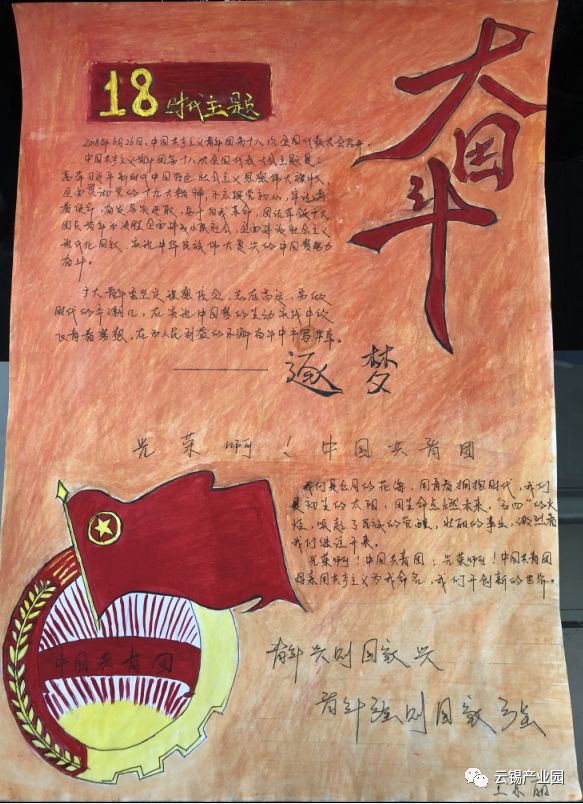 18时代主题
奋斗
2018年6月26日，中国共产主义青年团第十八次全国代表大会召开。
中国共产主义青年团第十八次全国代表大会主题是：
高举习近平新时代中国特色社会主义思想伟大旗帜，
全面贯彻党的十九大精神，不忘初心，牢记
使命，
团员青年为决胜全面建成小康社会，全面建设社会主义
现代化国家，实现中华民族伟大复兴的中国梦努力
奋斗。
广大青年要坚定理想信念，志存高远，勇做
时代的弄潮儿，在实现中国梦的生动实践中放
飞青春梦想，在为人民利益的不懈奋斗中书写华章。
——逐 梦
光荣啊！中国共青团
我们是五月的花海，用青春拥抱时代，我们
是初生的太阳，用生命点燃未来。“五四”的火
炬，唤起了民族的觉醒，壮丽的事业，激励着
我们继往开来。
光荣啊！中国共青团；光荣啊！中国共青团
母亲用共产主义为我命名，我们开创新的世界。
中国共青团
青年兴则国家兴
青年强则国家强
云锡产业园